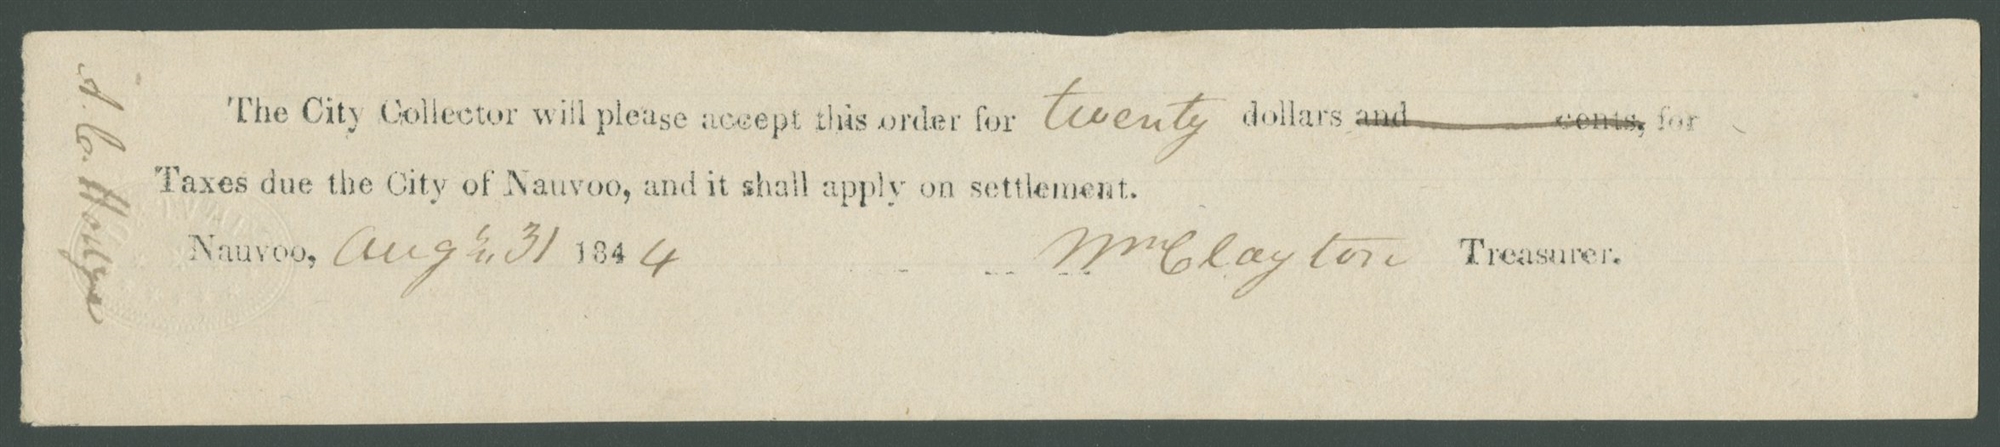 The City Collector will please accept this order for twenty dollars and cents, for
Taxes due the City of Nauvoo, and it shall apply on settlement.
Nauvoo, Augt 31 1844 Wm Clayton Treasurer.
A. C. Hodge